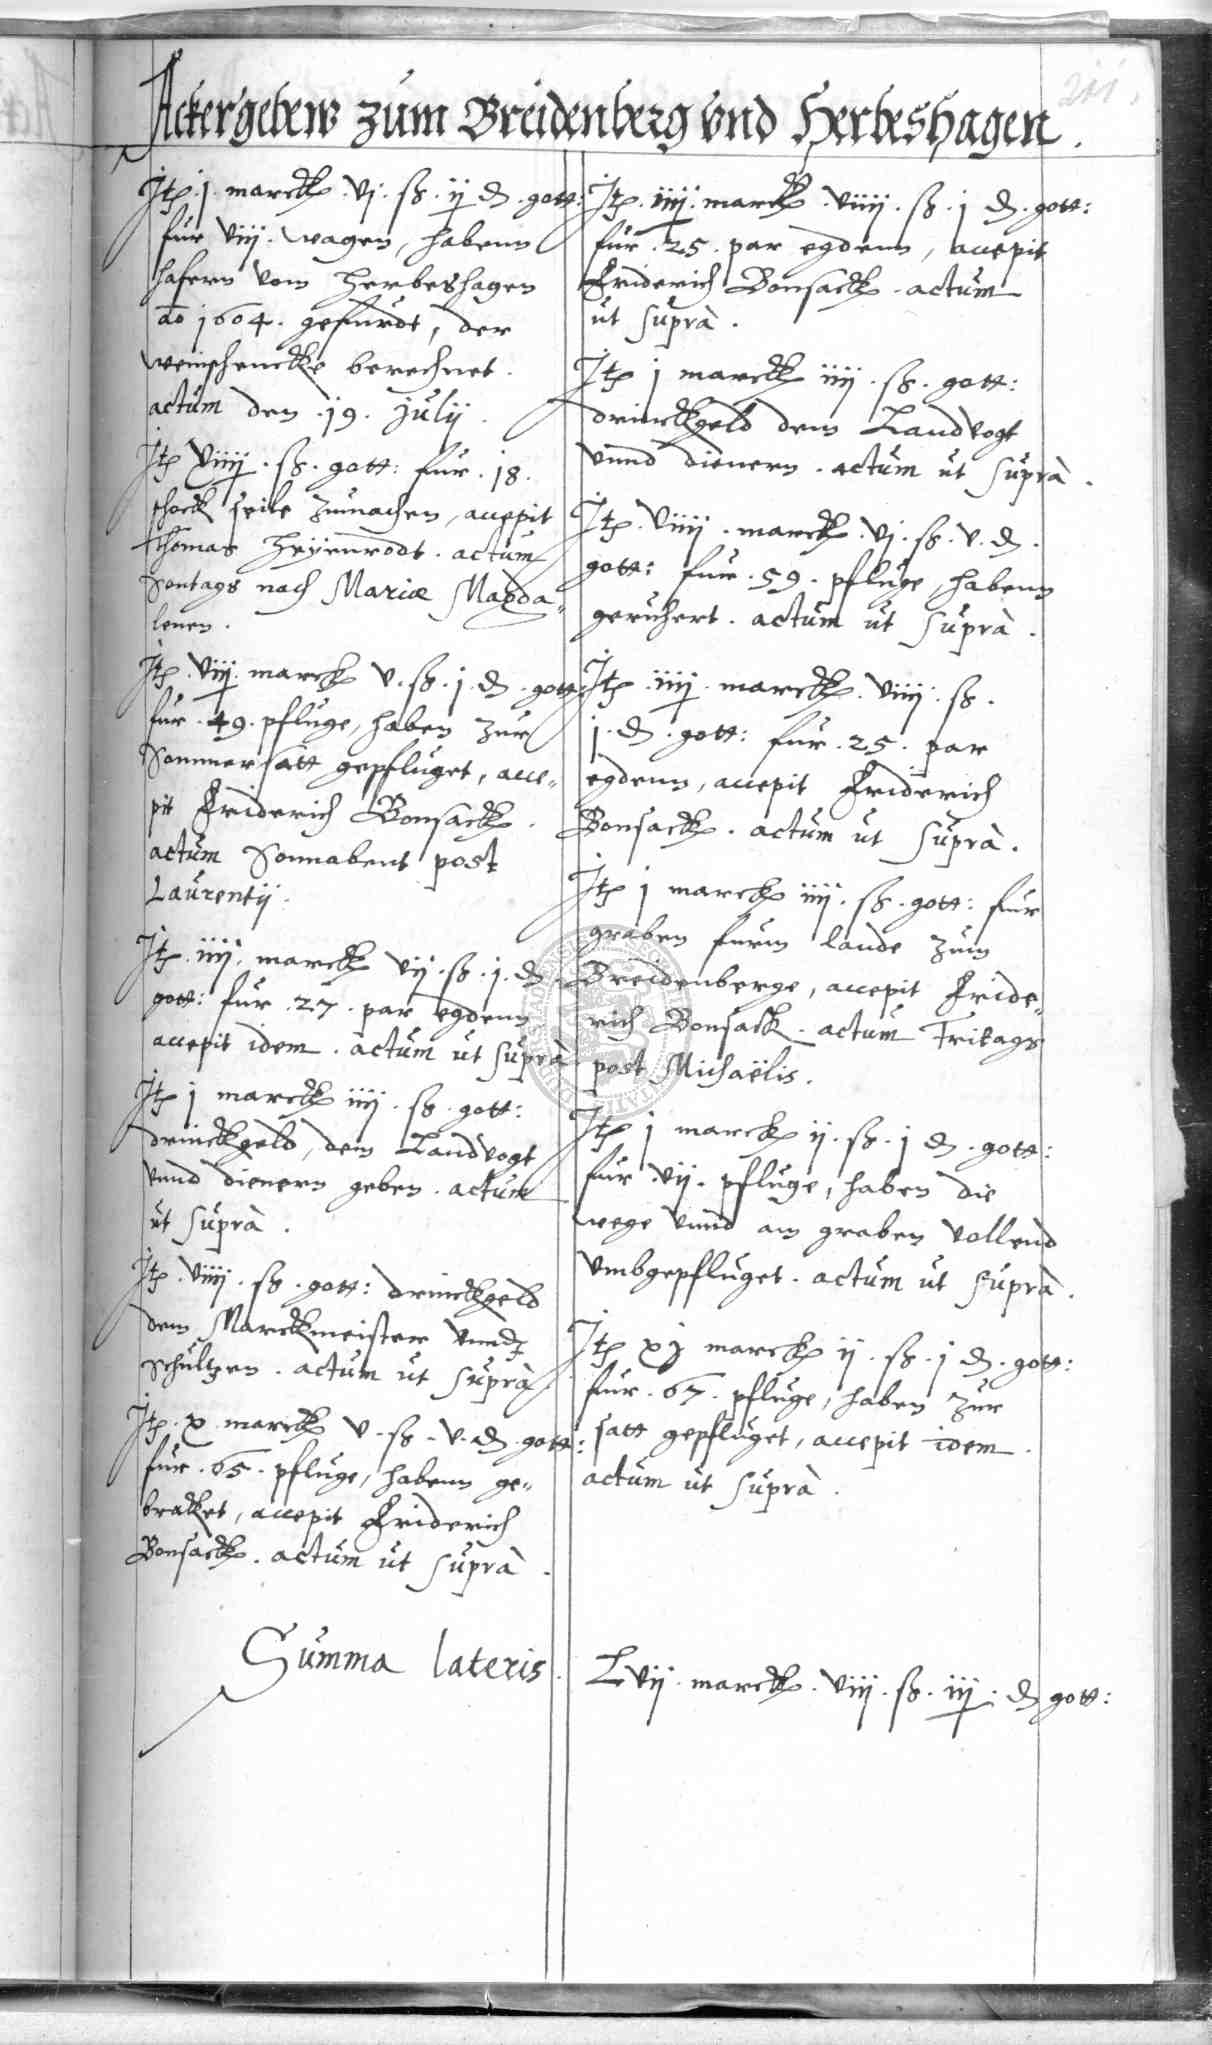 211.
Ackergebew zum Breidenberg vnd Herbeshagen.
Jtp. j. marck. vj. ß. ij ₰. gott:
fur viij. wagen, habenn
hafern vom Herbeshagen
ao 1604. gefurdt, der
weinschencke berechnet.
actum den .19. Julij.
Jtp viiij. ß. gott: fur .18.
schock seile zumachen, accepit
Thomas Heyenrodt. actum
Sontags nach Mariæ Magda-
lenen.
Jtp. viij. marck v. ß. j. ₰. gott:
fur .49. pfluge, haben zur
Sommersatt gepfluget, acce-
pit Friderich Bonsack.
actum Sonnabent post
Laurentij.
Jtp. iiij. marck vij. ß. j. ₰.
gott: fur .27. par egdenn
accepit idem. actum ut suprà
Jtp j marck iiij. ß. gott:
drinckgeld, dem Landvogt
vnnd dienern geben. actum
ut suprà.
Jtp. viiij. ß. gott: drinckgeld
dem Marckmeister vnnd
Schultzen. actum ut suprà
Jtp. x. marck v. ß. v. ₰. gott:
fur .65. pfluge, habenn ge-
bracket, accepit Friderich
Bonsack. actum ut suprà.
Jtp. iiij. marck. viiij. ß. j ₰. gott:
fur .25. par egdenn, accepit
Friderich Bonsack. actum
ut suprà.
Jtp j marck iiij. ß. gott:
drinckgeld dem Landvogt
vnnd dienern. actum ut suprà.
Jtp. viiij. marck. vj. ß. v. ₰.
gott: fur .59. pfluge, habenn
geruhert. actum ut suprà.
Jtp. iiij. marck. viiij. ß.
j. ₰. gott: fur .25. par
egdenn, accepit Friderich
Bonsack. actum ut suprà.
Jtp j marck iiij. ß. gott: fur
graben furm lande zum
Breidenberge, accepit Fride-
rich Bonsack. actum Fritags
post Michaëlis.
Jtp j marck ij. ß. j ₰. gott:
fur .vij. pfluge, haben die
wege vnnd am graben vollend
vmbgepfluget. actum ut suprà.
Jtp xj marck ij. ß. j ₰. gott:
fur .67. pfluge, haben zur
satt gepfluget, accepit idem.
actum ut suprà.
Summa lateris. Lvij. marck. viij. ß. iij. ₰ gott: